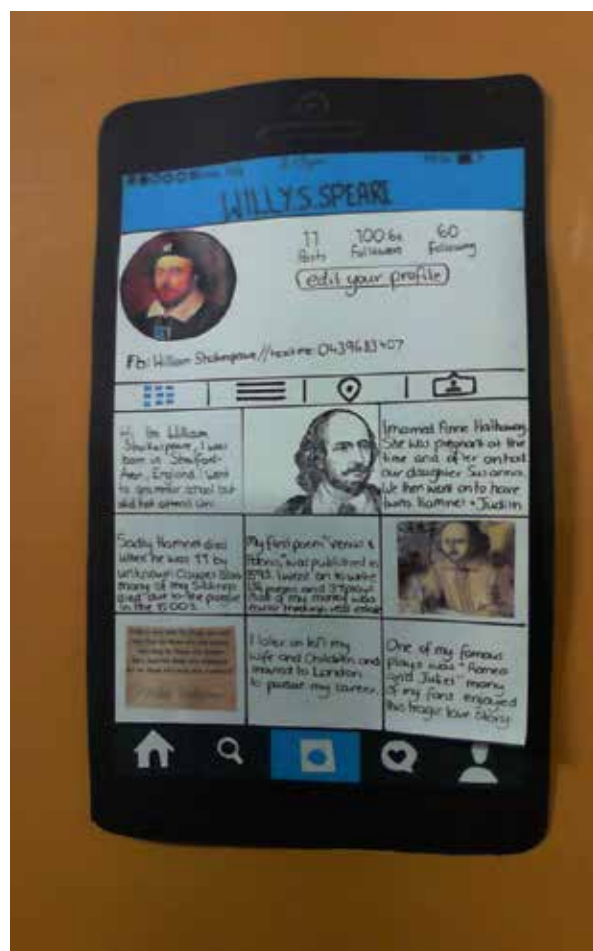 WILLY.S.SPEARE
11 100.6k 60
Posts Followers Following
edit your profile
Fb: William Shakespeare // 0439683407
Hi, I'm William
Shakespeare, I was
born in
Avon, England. I went
to grammar school but
did not attend uni.
I married Anne Hathaway.
She was pregnant at the
time and after on had
our daughter Susanna.
We then went on to have
twins Hamnet + Judith
Sadly Hamnet died
when he was 11 by
unknown causes. Also
many of my Siblings
died due to the
in the 1500s.
My first poem "Venus &
Adonis" was published in
1593. I went on to write
and 37 plays
of my money was
real estate
I later on left my
wife and Children and
moved to London
to pursue my career.
One of my famous
plays was "Romeo
and Juliet" many
of my fans enjoyed
this tragic love story